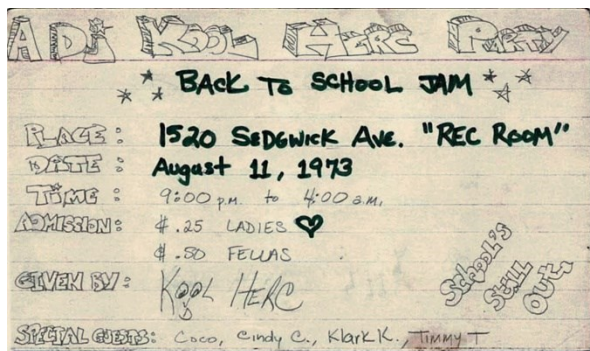 A DJ KOOL HERC PARTY
BACK TO SCHOOL JAM
PLACE: 1520 SEDGWICK AVE. "REC ROOM"
DATE: August 11, 1973
TIME: 9:00 p.m. to 4:00 a.m.
ADMISSION: $.25 LADIES ♥
$.50 FELLAS
GIVEN BY: KOOL HERC
SCHOOL'S STILL OUT.
SPECIAL GUESTS: Coco, Cindy C., Klark K., TIMMY T